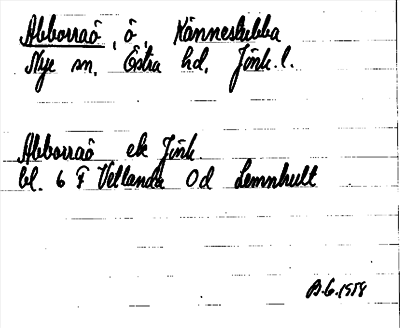 Abborraö, ö, Känneslubba
Nye sn. Östra hd. Jönk. l.
Abborraö ek Jönk.
bl. 6 F Vetlanda Od Lemnhult
B.G. 1958